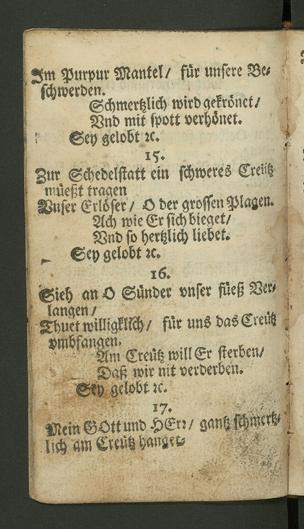 Im Purpur Mantel/ für unsere Be-
schwerden.
Schmertzlich wird gekrönet/
Vnd mit spott verhönet.
Sey gelobt ꝛc.
15.
Zur Schedelstatt ein schweres Creütz
müeßt tragen
Vnser Erlöser/ O der grossen Plagen.
Ach wie Er sich bieget/
Vnd so hertzlich liebet.
Sey gelobt ꝛc.
16.
Sieh an O Sünder vnser füeß Ver-
langen/
Thuet willigklich/ für uns das Creütz
vmbfangen.
Am Creütz will Er sterben/
Daß wir nit verderben.
Sey gelobt ꝛc.
17.
Mein GOtt und HErr/ gantz schmertz-
lich am Creütz hanget